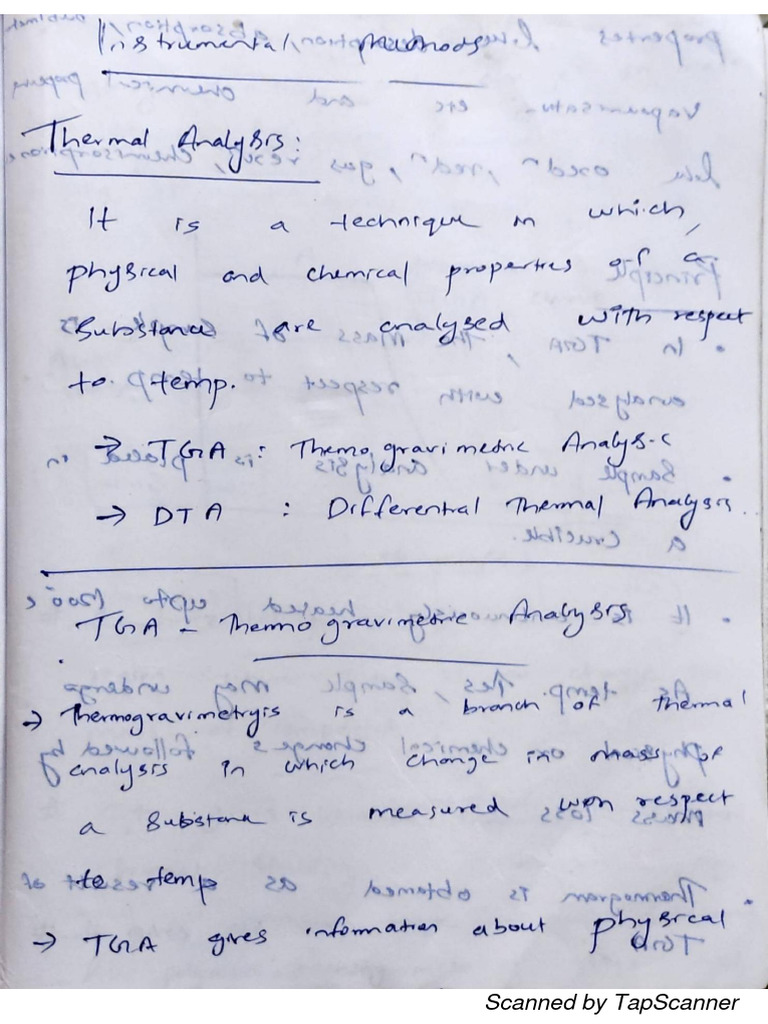 Instrumental methods
Thermal Analysis:
It is a technique in which
physical and chemical properties of a
Substance are analysed with respect
to temp.
→ TGA : Themogravimetric Analysis
→ DTA : Differential Thermal Analysis.
TGA - Thermogravimetric Analysis
→ Thermogravimetryis is a branch of thermal
analysis in which change in mass of
a Substance is measured with respect
to temp
→ TGA gives information about physical
Scanned by TapScanner